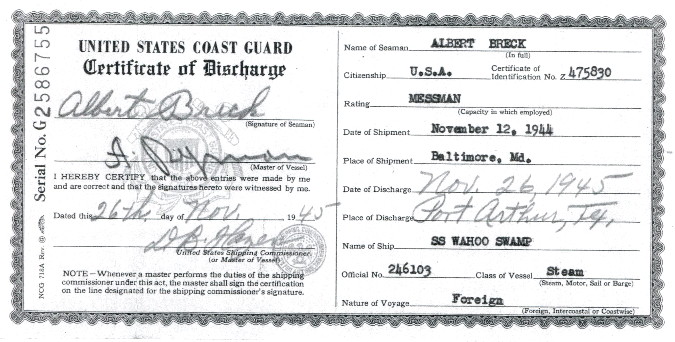 Serial No. G 2586755
NCG 718A Rev
UNITED STATES COAST GUARD
Certificate of Discharge
Albert Breck
(Signature of Seaman)
(Master of Vessel)
I HEREBY CERTIFY that the above entries were made by me
and are correct and that the signatures hereto were witnessed by me.
Dated this 26th day of Nov, 1945
United States Shipping Commissioner
(or Master of Vessel)
NOTE—Whenever a master performs the duties of the shipping
commissioner under this act, the master shall sign the certification
on the line designated for the shipping commissioner's signature.
Name of Seaman ALBERT BRECK
(In full)
Citizenship U.S.A. Certificate of Identification No. Z 475830
Rating MESSMAN
(Capacity in which employed)
Date of Shipment November 12, 1944
Place of Shipment Baltimore, Md.
Date of Discharge Nov. 26, 1945
Place of Discharge Port Arthur, Tex,
Name of Ship SS WAHOO SWAMP
Official No. 246103 Class of Vessel Steam
(Steam, Motor, Sail or Barge)
Nature of Voyage Foreign
(Foreign, Intercoastal or Coastwise)